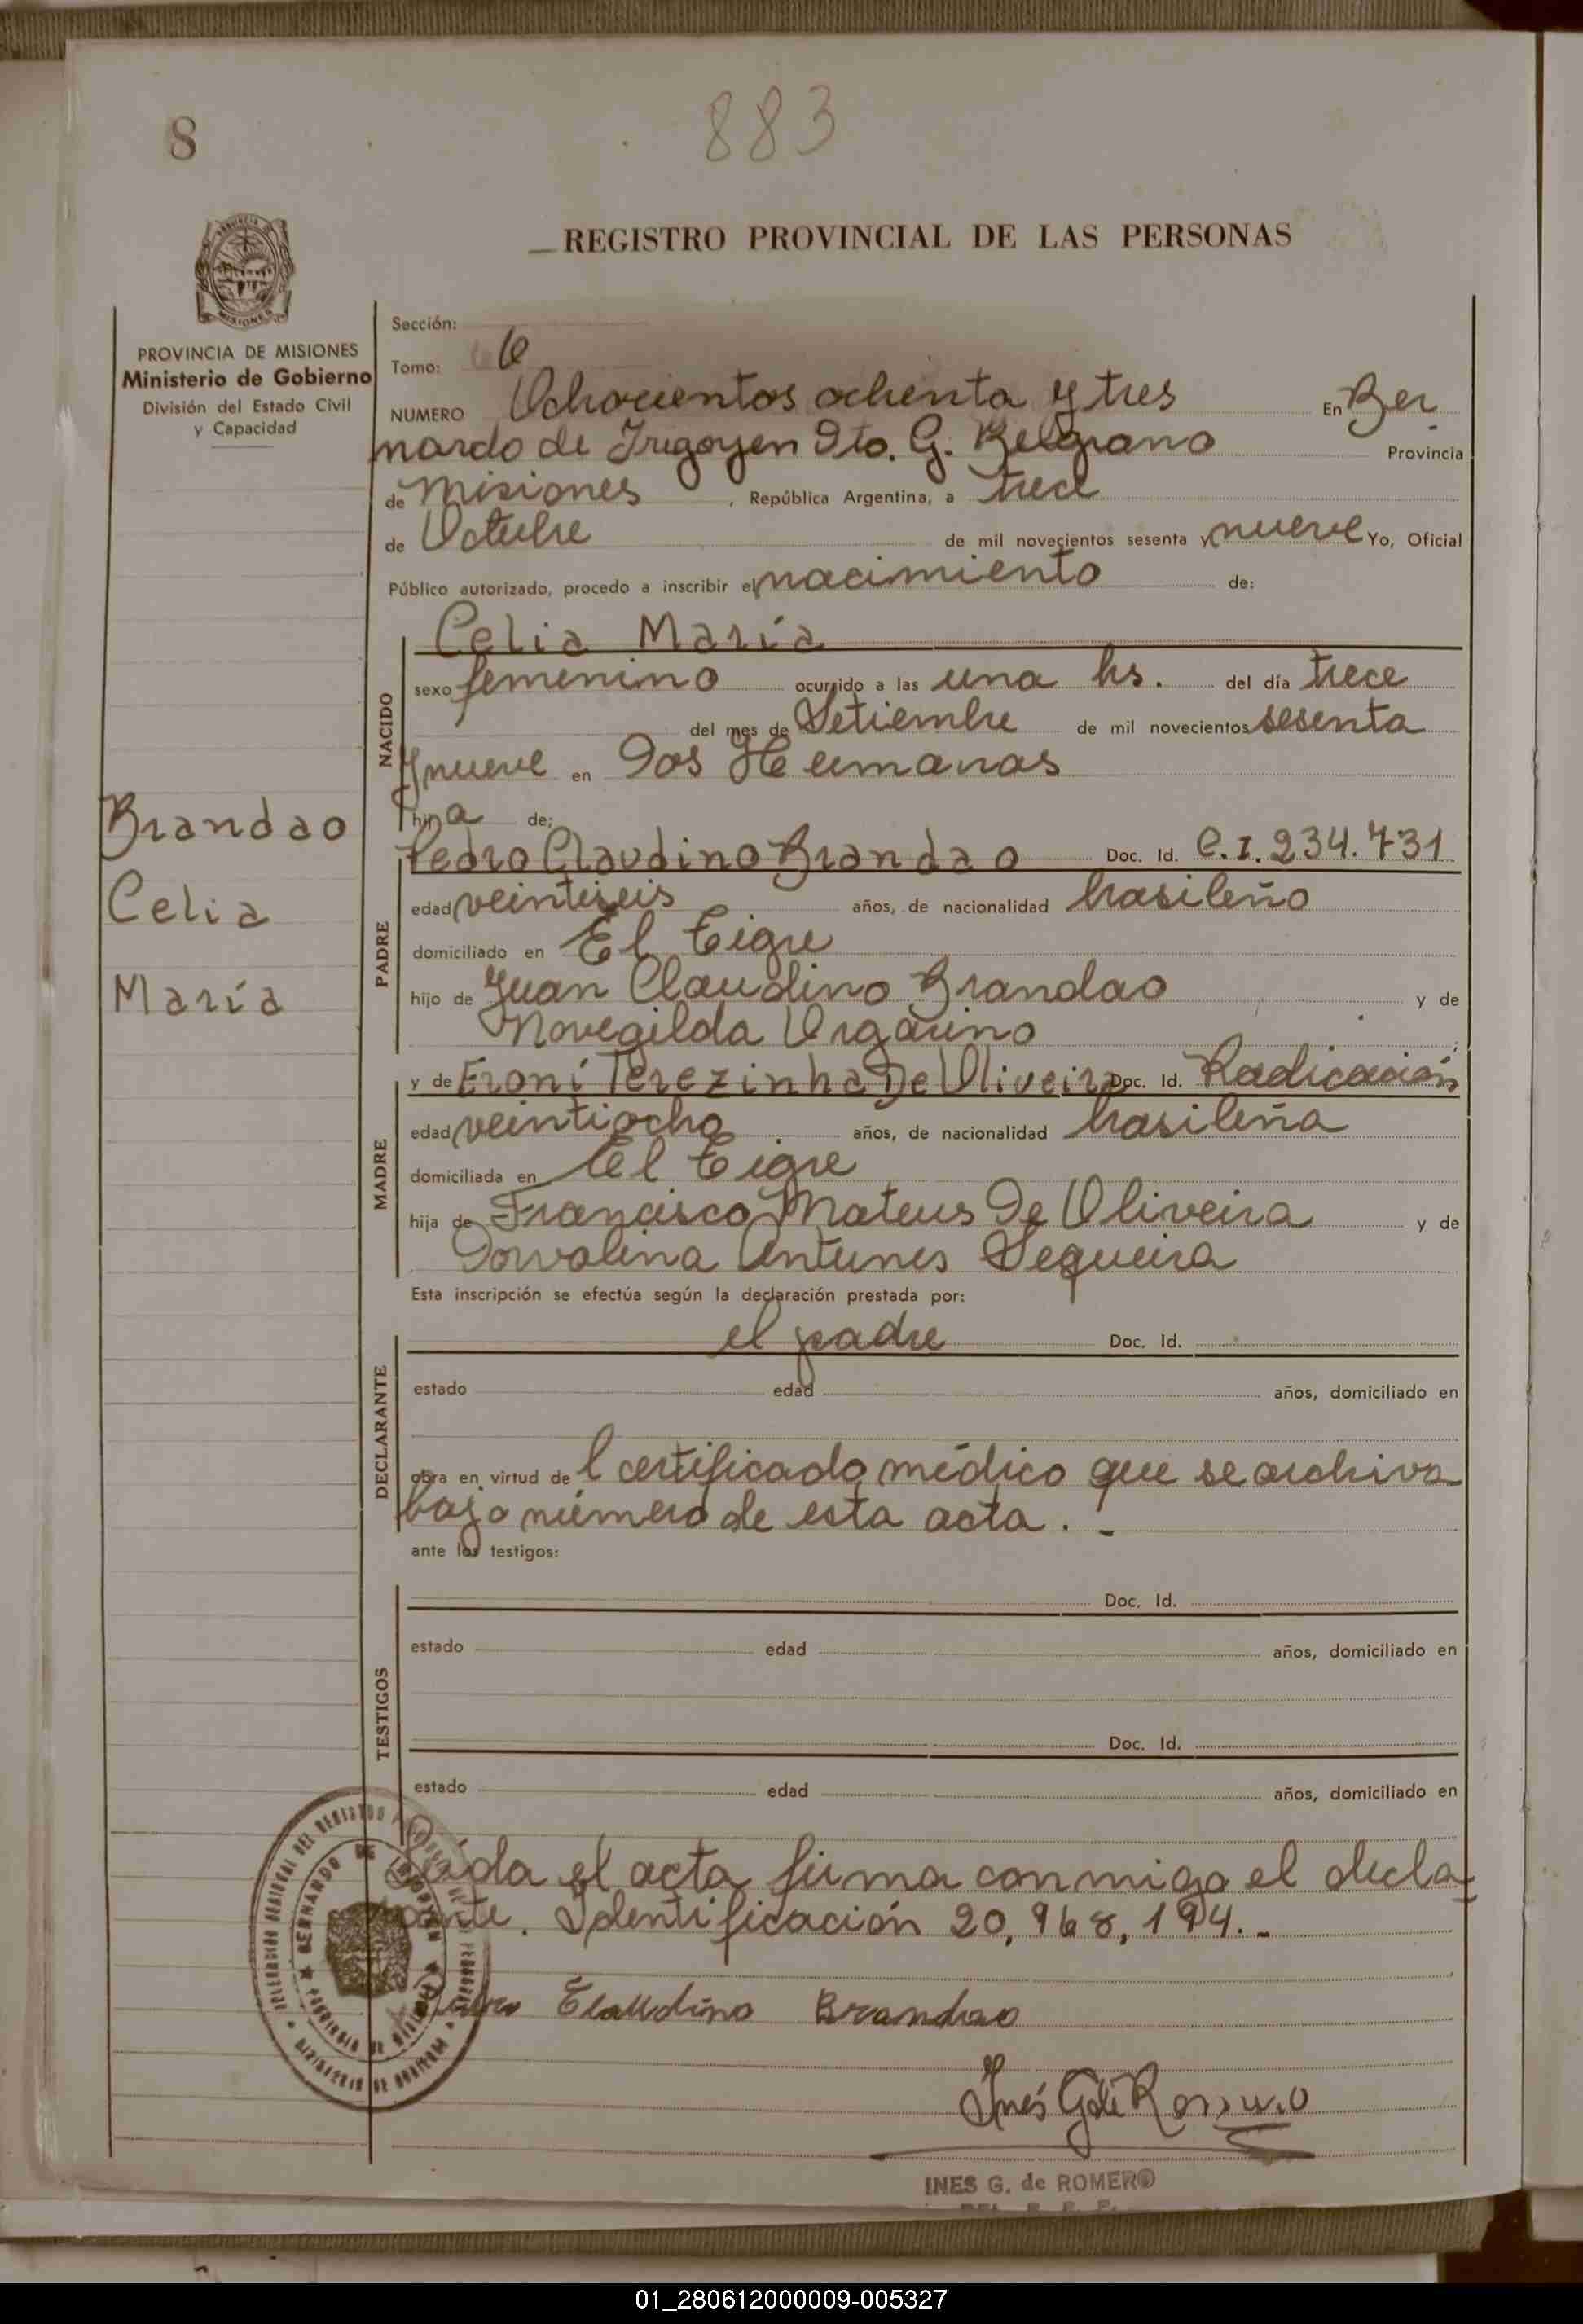 883
8
REGISTRO PROVINCIAL DE LAS PERSONAS
PROVINCIA DE MISIONES
Ministerio de Gobierno
División del Estado Civil
y Capacidad
Sección:
Tomo: 6
NUMERO Ochocientos ochenta y tres En Ber
nardo de Irigoyen Dto. G. Belgrano Provincia
de Misiones, República Argentina, a trece
de Octubre de mil novecientos sesenta y nueve Yo, Oficial
Público autorizado, procedo a inscribir el nacimiento de:
Celia María
NACIDO
sexo femenino ocurrido a las una hs. del día trece
del mes de Setiembre de mil novecientos sesenta
y nueve en Dos Hermanas
hija de:
Brandao
Celia
María
Pedro Claudino Brandao Doc. Id. C.I. 234.731
PADRE
edad veintiseis años, de nacionalidad brasileño
domiciliado en El Tigre
hijo de Juan Claudino Brandao y de
Novegilda Orgarino
y de Eroní Terezinha De Oliveira Doc. Id. Radicación
MADRE
edad veintiocho años, de nacionalidad brasileña
domiciliada en El Tigre
hija de Francisco Mateus De Oliveira y de
Dorvalina Antunes Sequeira
Esta inscripción se efectúa según la declaración prestada por:
el padre Doc. Id.
DECLARANTE
estado edad años, domiciliado en
obra en virtud del certificado médico que se archiva
bajo número de esta acta. -
ante los testigos:
Doc. Id.
TESTIGOS
estado edad años, domiciliado en
Doc. Id.
estado edad años, domiciliado en
Leída el acta firma conmigo el decla-
rante. Identificación 20,968,194.-
Claudino Brandao
BERNARDO DE IRIGOYEN
Inés G de Romero
INES G. de ROMERO
01_280612000009-005327